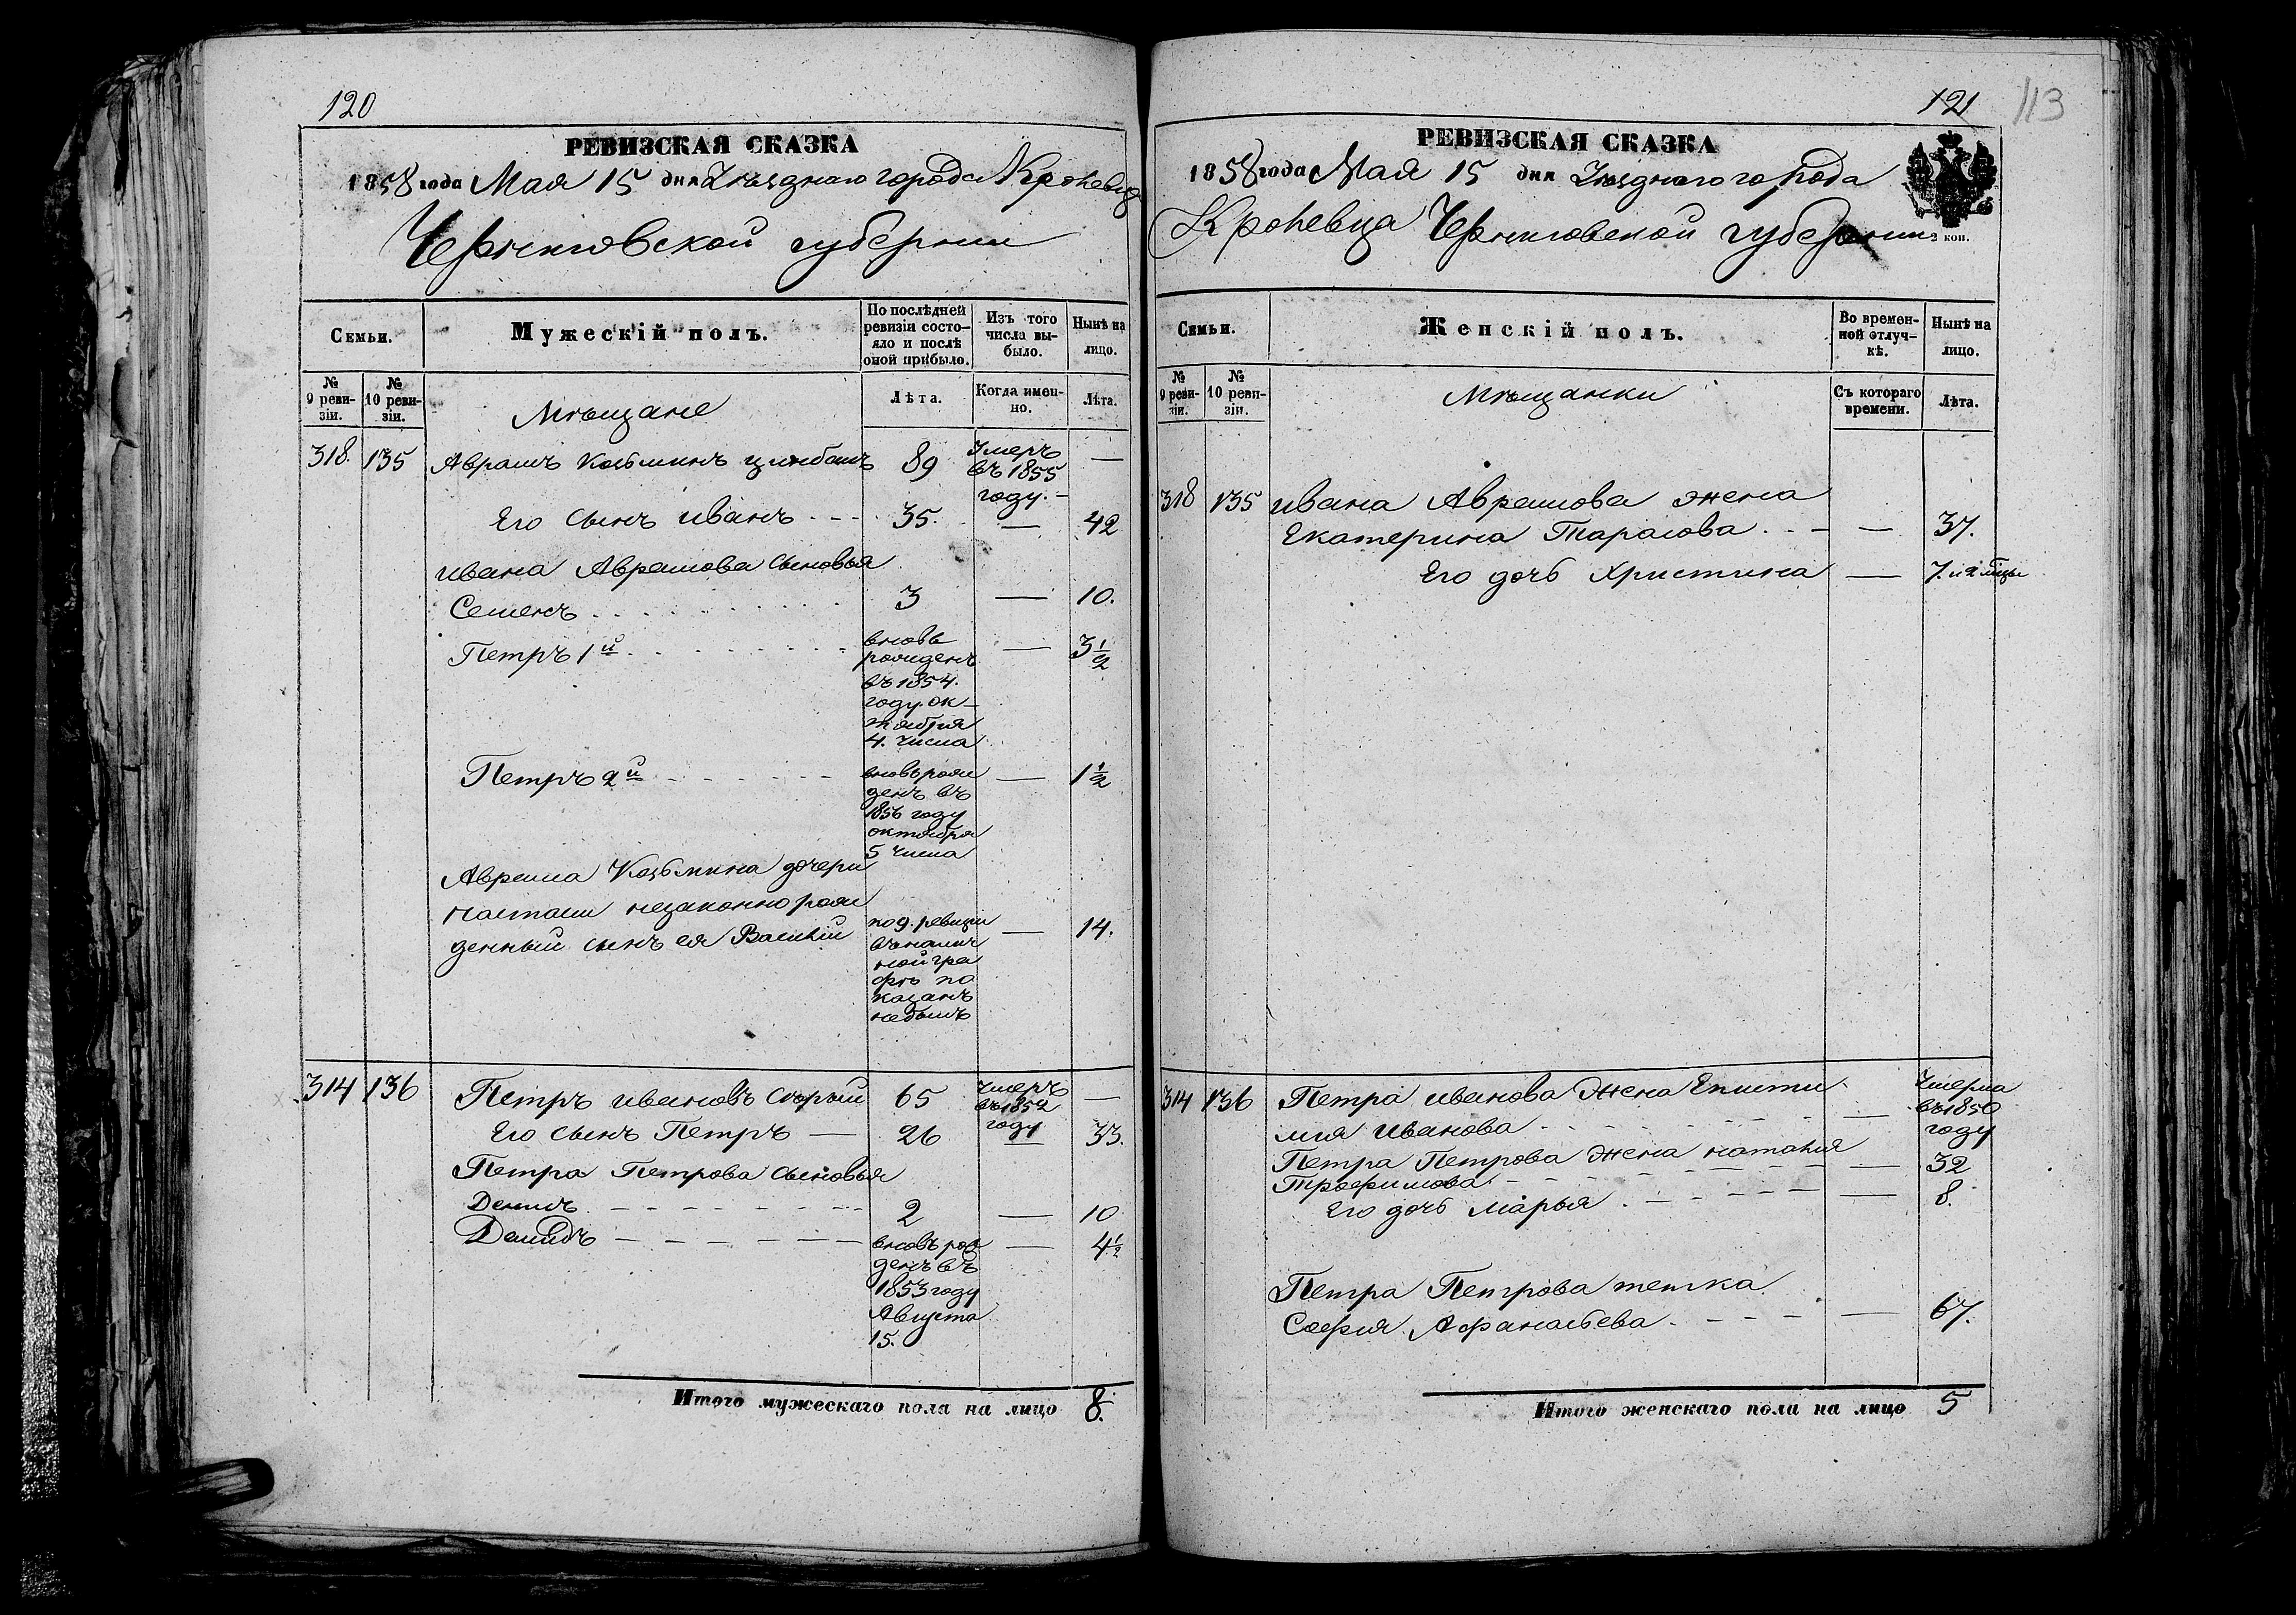 120
РЕВИЗСКАЯ СКАЗКА
1858 года Мая 15 дня Уѣзднаго города Кролевца
Черниговской губернiи
Семьи.
Мужескiй полъ.
По послѣдней ревизiи состо-
яло и послѣ
оной прибыло.
Изъ того
числа вы-
было.
Нынѣ на
лицо.
№
9 реви-
зiи.
№
10 реви-
зiи.
Мѣщане
Лѣта.
Когда имен-
но.
Лѣта.
318. 135 Аврамъ Козьминъ 89 Умеръ
въ 1855
году. —
Его сынъ Иванъ 35. — 42
Ивана Аврамова сыновья
Семенъ 3 — 10.
Петръ 1й вновь — 3 1/2
рожденъ
въ 1854.
году ок-
тября
4. числа
Петръ 2й вновь рож — 1 1/2
денъ въ
1856 году
октября
5 числа
Аврама Козьмина дочери
Настаси незаконно рож
денный сынъ ея Василiй по 9. ревизiи — 14.
въ налич
ной гра
фѣ по
казанъ
небылъ
314 136 Петръ Ивановъ Скорый 65 Умеръ —
въ 1852
году
Его сынъ Петръ — 26 — 33.
Петра Петрова сыновья
Денисъ 2 — 10
Демидъ вновь рож — 4 1/2
денъ въ
1853 году
Августа
15.
Итого мужескаго пола на лицо 8.
121 113
РЕВИЗСКАЯ СКАЗКА
1858 года Мая 15 дня Уѣзднаго города
Кролевца Черниговской губернiи
2 коп.
Семьи.
Женскiй полъ.
Во времен-
ной отлуч-
кѣ.
Нынѣ на
лицо.
№
9 реви-
зiи.
№
10 реви-
зiи.
Мѣщанки
Съ котораго
времени.
Лѣта.
318 135 Ивана Аврамова жена
Екатерина Тарасова — 37.
Его дочь Христина — 7. и 2 мѣцы
314 136 Петра Иванова жена Еписти Умерла
мия Иванова — въ 1850
году
Петра Петрова жена Наталiя
Трофимова — 32
Его дочь Марья — 8.
Петра Петрова тетка
Софiя Афанасьева — 67.
Итого женскаго пола на лицо 5